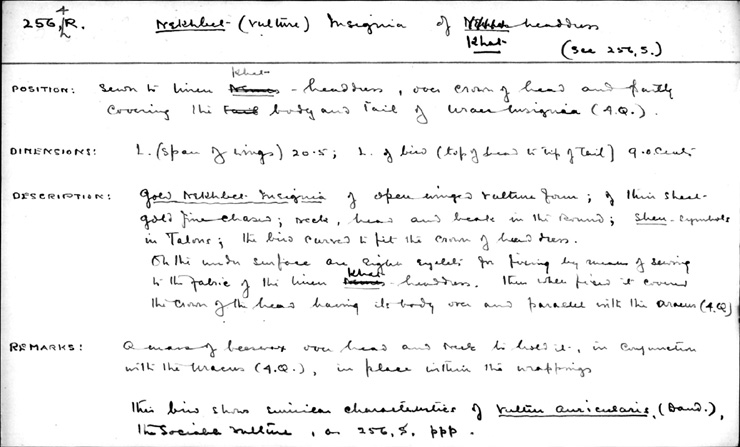 256,4R. Nekhbet-(vulture) Insignia of Nemes headdress
Khat (See 256,S.)
POSITION: Sewn to linen Nemes Khat -headdress, over crown of head and partly
covering the tail body and tail of uraeus Insignia (4.Q.).
DIMENSIONS: L. (span of wings) 20.5; L. of bird (top of head to tip of tail) 9.0 Cents
DESCRIPTION: Gold Nekhbet-Insignia of open winged vulture form; of thin sheet-
gold fine chased; neck, head and beak in the Round; Shen-symbols
in Talons; the bird curved to fit the crown of headdress.
On the under surface are eight eyelets for fixing by means of sewing
to the fabric of the linen Nemes Khat -headdress. Thus when fixed it covered
the crown of the head having its body over and parallel with the uraeus (4.Q)
REMARKS: A mass of beeswax over head and neck to hold it, in conjunction
with the uraeus (4.Q.), in place within the wrappings
This bird shows similar characteristics of Vultur auricularis, (Daud.),
the Sociable Vulture, as 256, ppp.